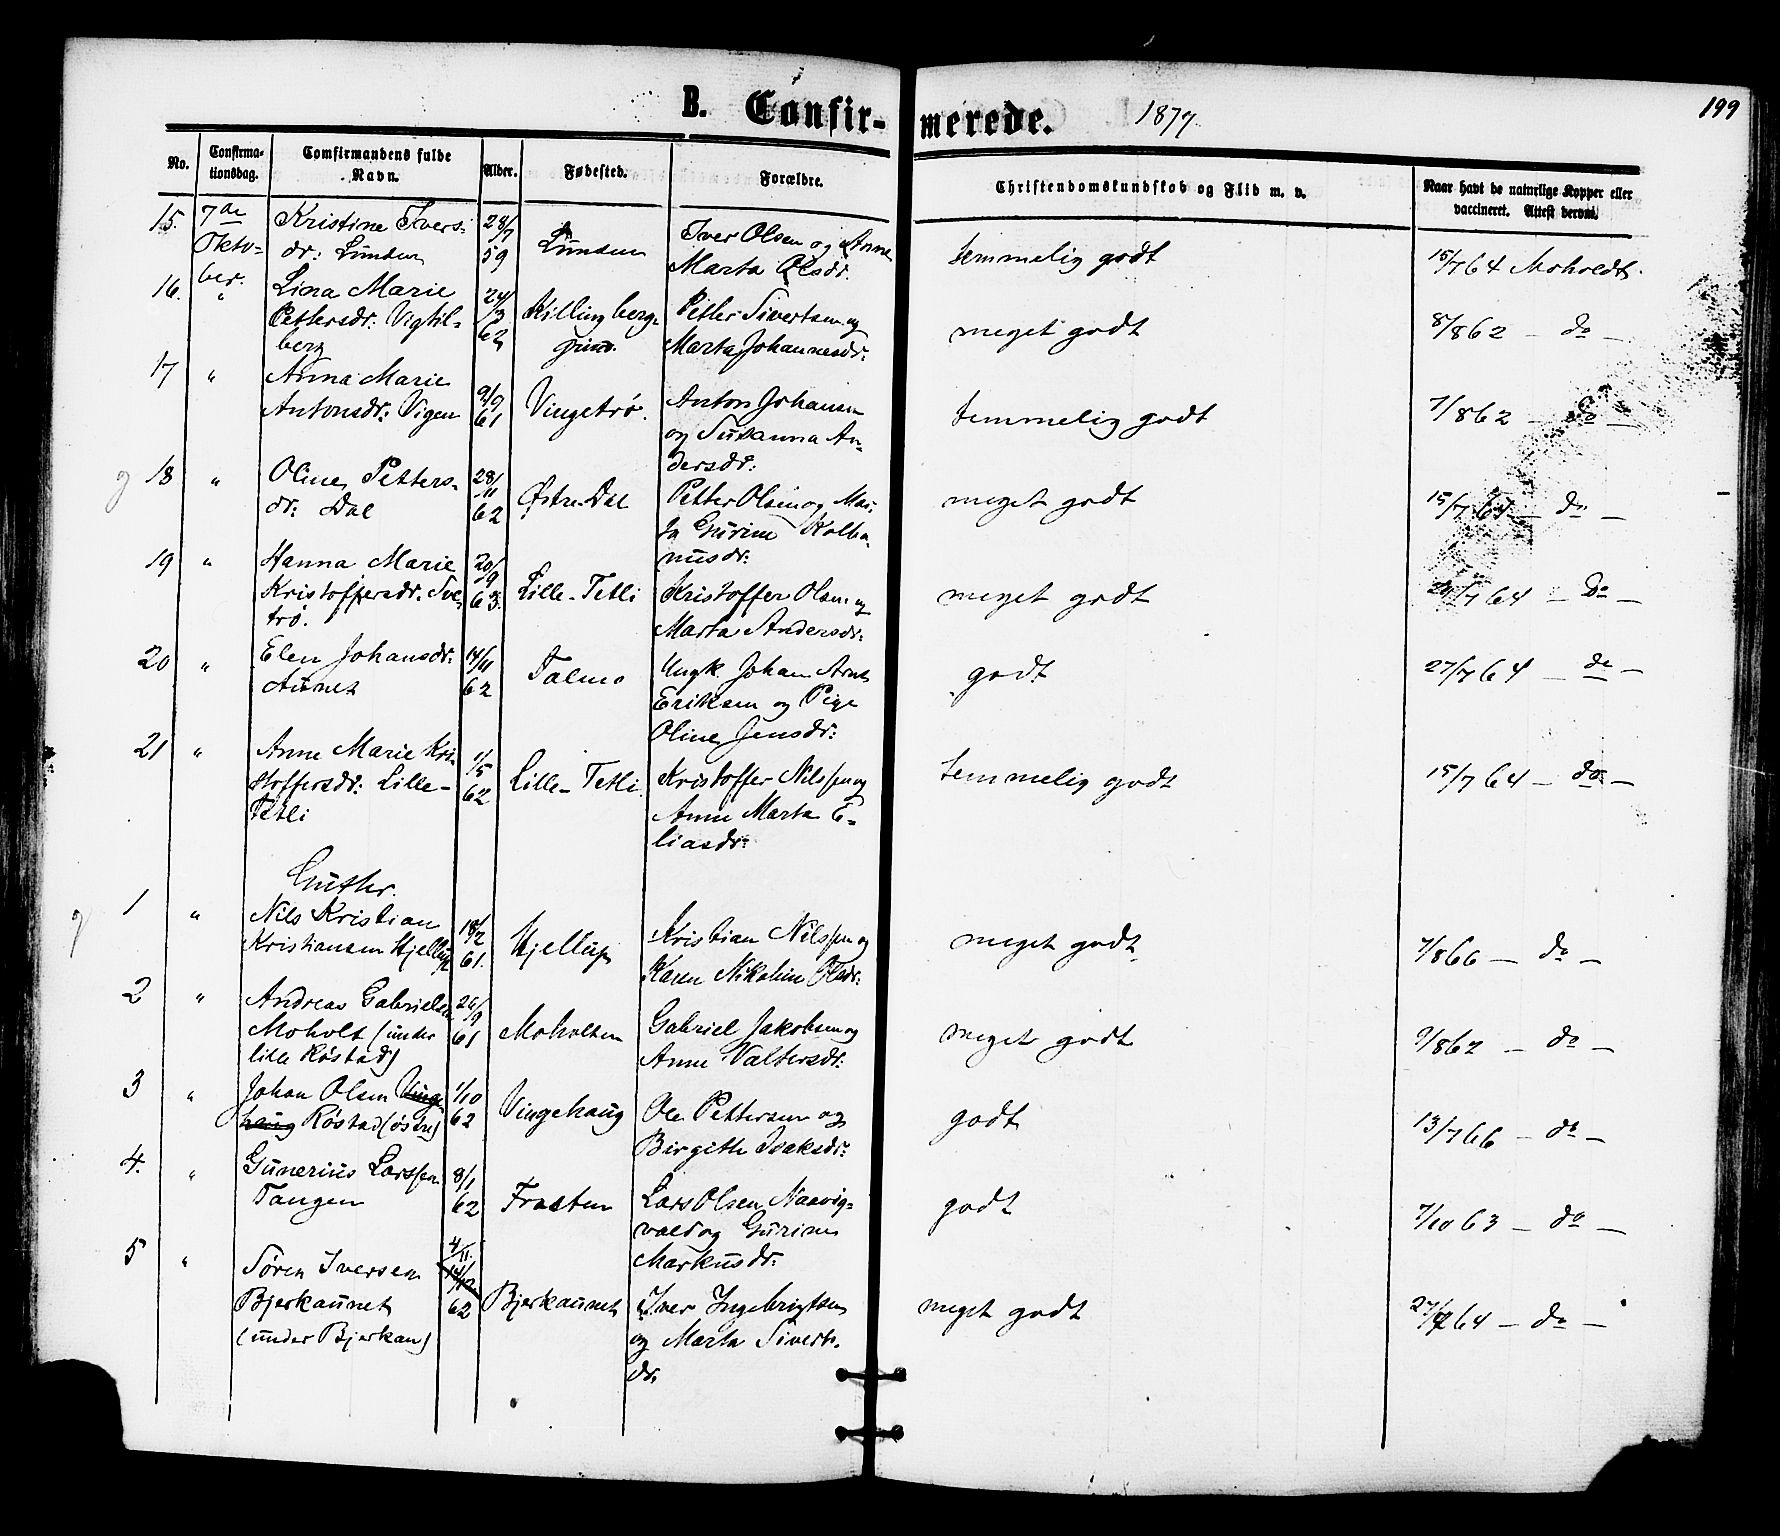 B. Confirmerede. 1877. 199
No. Confirmationsdag. Comfirmandens fulde Navn. Alder. Fødested. Forældre. Christendomskundskab og Flid m. v. Naar havt de naturlige Kopper eller vaccineret. Attest derom.
15. 7de Oktober. Kristine Iversdr: Lunden 28/7 59 Lunden Iver Olsen og Anne Marta Olsdr. temmelig godt 15/7 64 Moholdt.
16. " Lina Marie Pettersdr: Vigtilberg 24/3 62 Killingberggrind. Petter Sivertsen og Marta Johannesdr: meget godt 8/8 62 – do –
17 " Anna Marie Antonsdr: Vigen 9/9 61 Vingetrø. Anton Johansen og Susanna Andersdr: temmelig godt 7/8 62 – do –
g 18 " Oline Pettersdr: Dal 28/11 62 Østre-Dal Petter Olsen og Gurine meget godt 15/7 64 – do –
19 " Hanna Marie Kristoffersdr. trø. 20/9 63. Lille-Tetli Kristoffer Olsen og Marta Andersdr: meget godt 7 64 – Do –
20 " Elen Johansdr: Aunet 14/11 62 Talmo Ungk. Johan Arnt Eriksen og Pige Oline Jensdr: godt 27/7 64 – do –
21 " Anne Marie Kristoffersdr: Lille-Tetli 1/5 62 Lille-Tetli. Kristoffer Nilssen og Anne Marta Eliasdr: temmelig godt 15/7 64 – do –
Gutter.
g 1 " Nils Kristian Kristiansen Hjellup 18/2 61. Hjellup Kristian Nilssen og Karen Nikoline Olsdr: meget godt 7/8 66 – do –
2 " Andreas Gabrielsen Moholt (under lille Røstad) 26/9 61 Moholten Gabriel Jakobsen og Anne Valtersdr: meget godt 9/8 62 – do –
3 " Johan Olsen Vingehaug Røstad (østre) 1/10 62 Vingehaug Ole Pettersen og Birgithe Isaksdr: godt 13/7 66 – do –
4. " Gunerius Larssen Tangen 8/1 62 Fossten Lars Olsen Naavigvold og Gurine Markusdr: godt 7/10 63 – do –
5 " Søren Iversen Bjerkaunet (under Bjerkan) 4/11. 14/12 62 Bjerkaunet Iver Ingebrigtsen og Marta Sivertsdr. meget godt 27/7 64 – do –